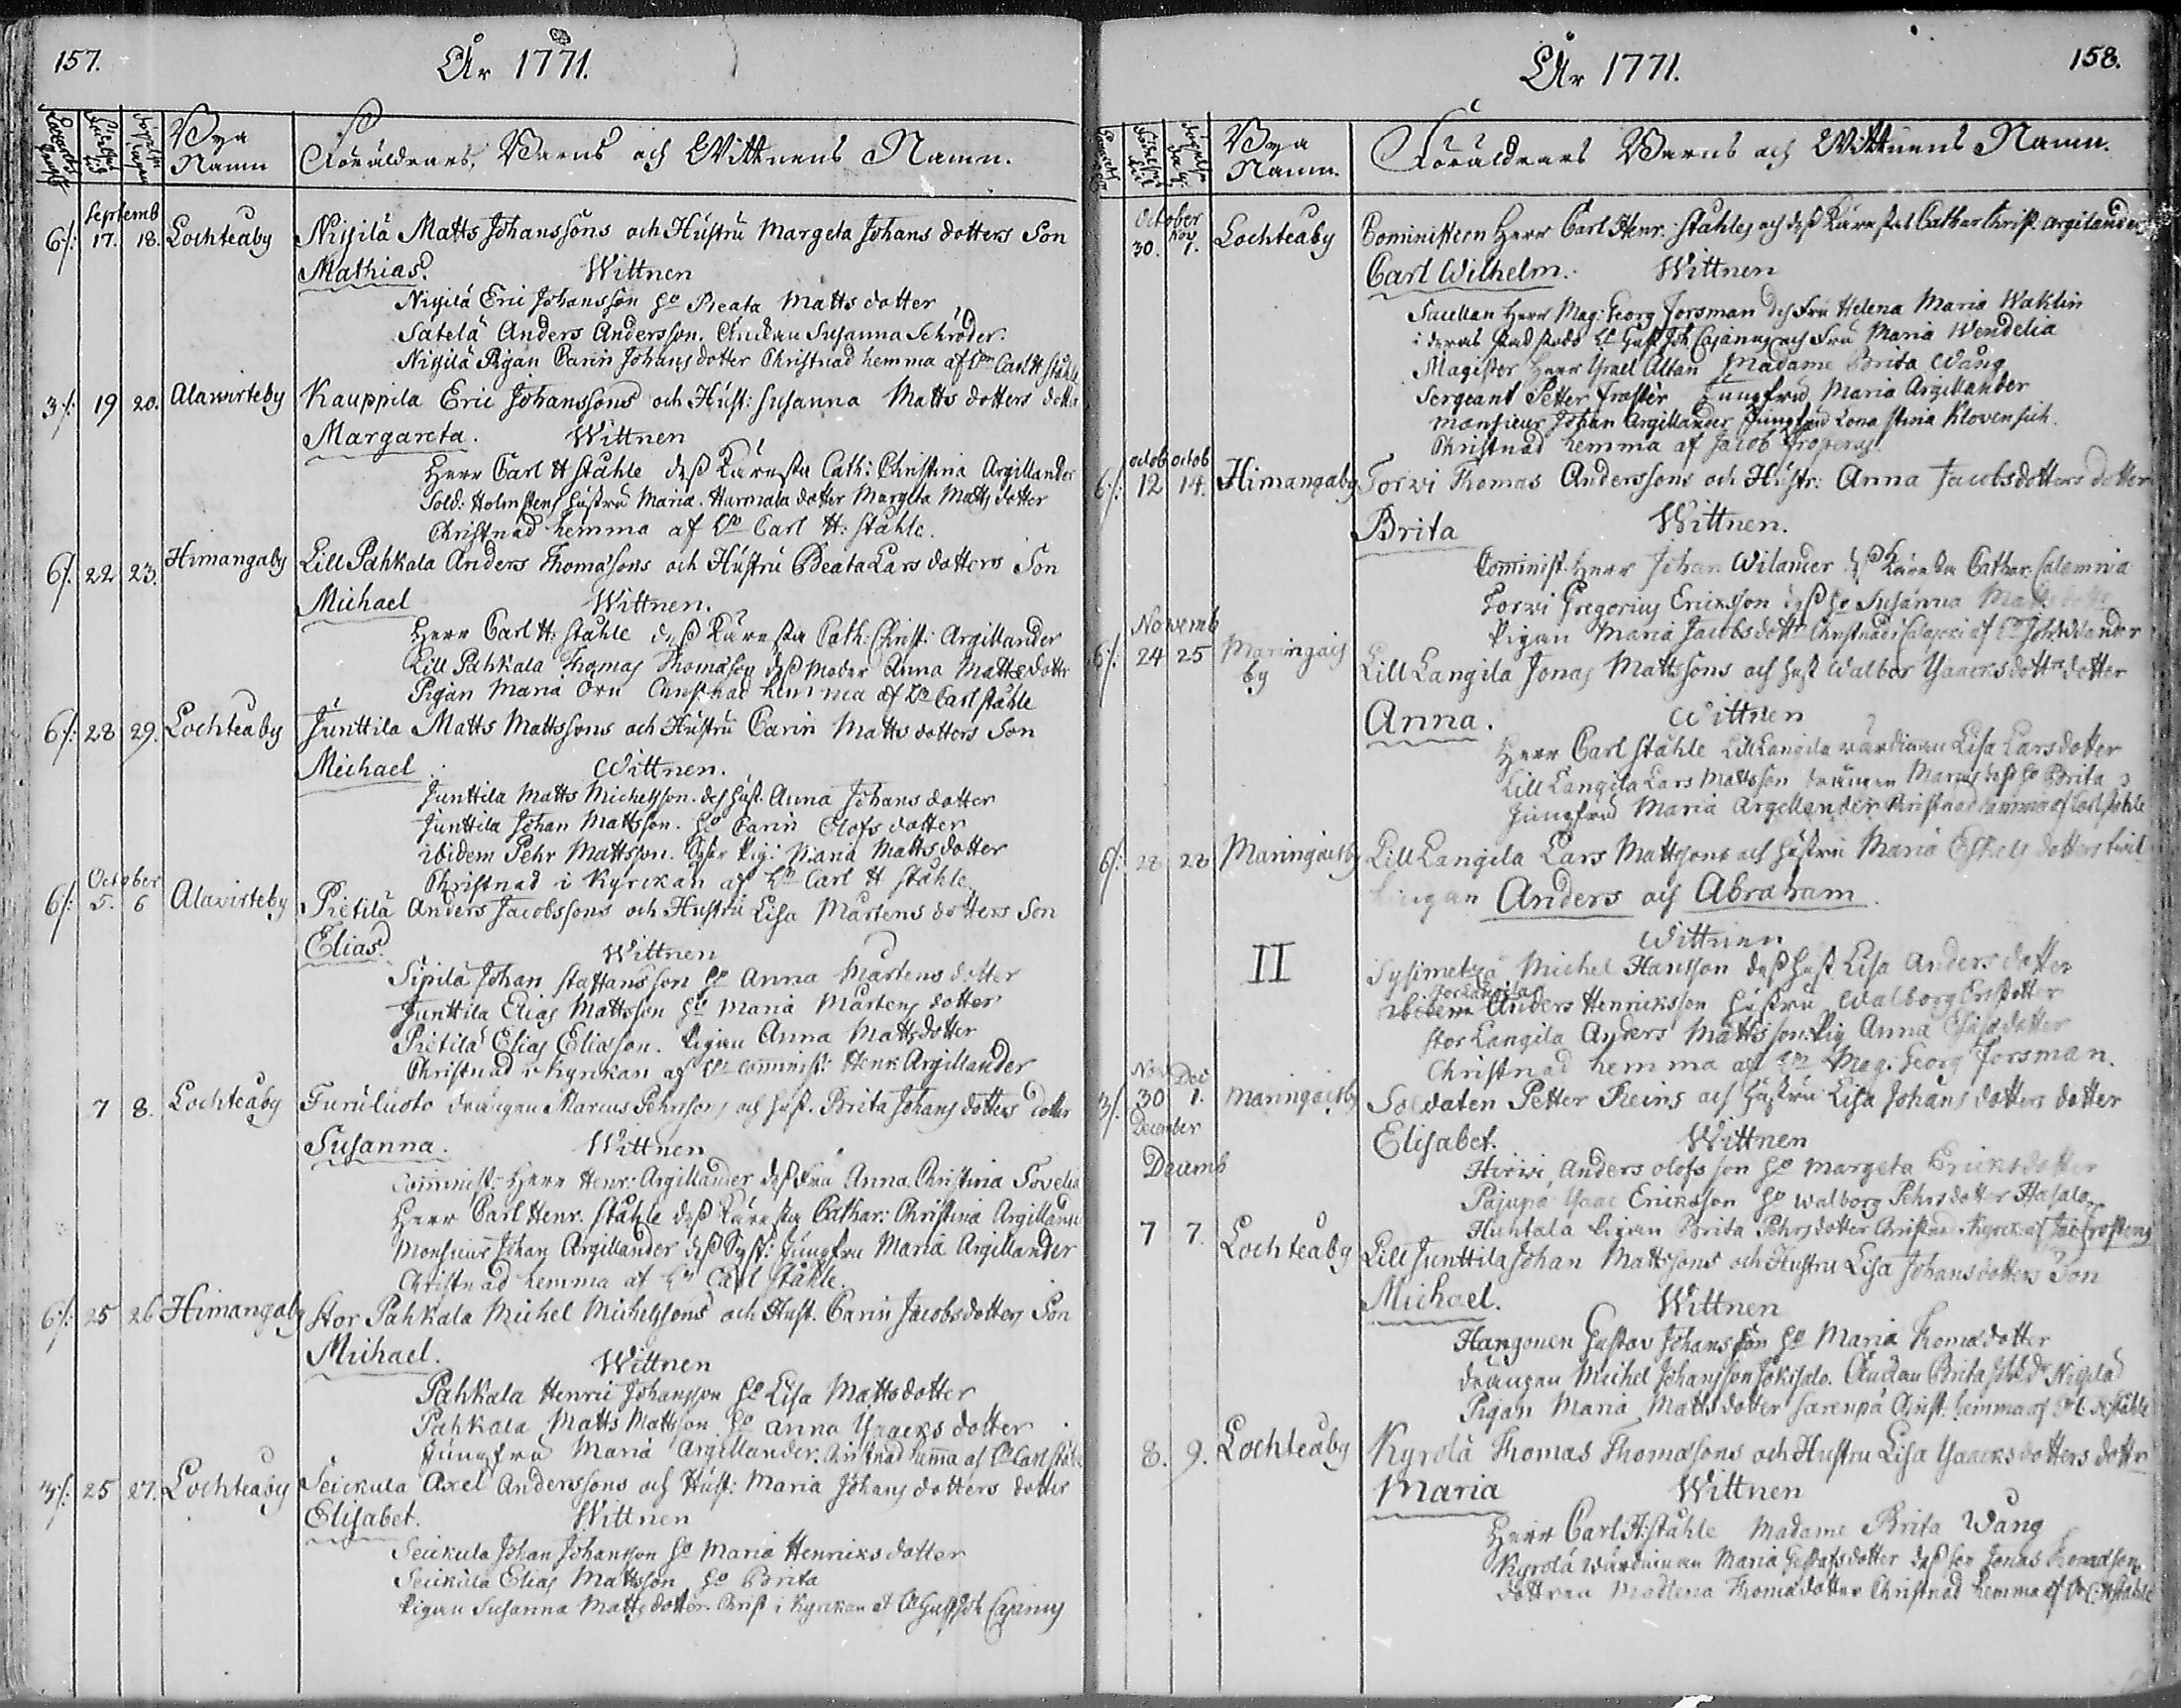 157.
År 1771.
Bya Namn
Föräldrars, Barns och Wittnens Namn.
Septemb
6/: 17. 18. Lochteaby Niskilä Matts Johanssons och Hustru Margeta Johans dotters Son
Mathias. Wittnen
Niskilä Eric Johansson ho Beata Matts dotter
Satelä Anders Andersson. Enckan Susanna Schröder.
Niskilä Pigan Carin Johans dotter Christnad hemma af Hr Carl H Ståhle
3/: 19 20. Alawirteby Kauppila Eric Johanssons och Hust: Susanna Matts dotters dotter
Margareta. Wittnen
Herr Carl H Ståhle dess Käresta Cath: Christina Argillander
Sold: Holmstens hustru Maria. Harmala dotter Margeta Matts dotter
Christnad hemma af Hr Carl H: Ståhle.
6/. 22 23. Himangaby Lill Pahkala Anders Thomasons och Hustru Beata Lars dotters Son
Michael Wittnen.
Herr Carl H: Ståhle dess Käresta Cath: Christ: Argillander
Lill Pahkala Thomas Thomason dess Moder Anna Matts dotter
Pigan Maria Örn Christnad hemma af Hr Carl Ståhle
6/: 28 29. Lochteaby Junttila Matts Mattssons och Hustru Carin Matts dotters Son
Michael Wittnen.
Junttila Matts Michelsson. des hust. Anna Johans dotter
Junttila Johan Mattsson. ho Carin Olofs dotter
ibidem Pehr Mattsson. Pig: Maria Matts dotter
Christnad i Kyrckan af Hr Carl H Ståhle
October
6/: 5. 6 Alavirteby Pietilä Anders Jacobssons och Hustru Lisa Mårtens dotters Son
Elias. Wittnen
Sipilä Johan Staffansson ho Anna Mårtens dotter
Junttila Elias Mattsson ho Maria Mårtens dotter
Pietilä Elias Eliasson. Pigan Anna Matts dotter
Christnad i Kyrckan af Hr Comminist: Henr: Argillander
7 8. Lochteaby Furuluoto drängen Marcus Pehrsons och hust. Brita Johans dotters dotter
Susanna. Wittnen
Comminist: Herr Henr: Argillander dess Fru Anna Christina Sovelia
Herr Carl Henr. Ståhle dess Käresta Cathar: Christina Argillander
Monsieur Johan Argillander dess Syst: Jungfru Maria Argillander
Christnad hemma af Hr Carl Ståhle.
6/: 25 26 Himangaby Stor Pahkala Michel Michelssons och Hust. Carin Jacobs dotters Son
Michael. Wittnen
Pahkala Henric Johansson ho Lisa Matts dotter
Pahkala Matts Mattsson ho Anna Ysaacks dotter
Jungfru Maria Argillander. Christnad hemma af Hr Carl Ståhle
3/: 25 27. Lochteaby Seickula Axel Anderssons och Hust: Maria Johans dotters dotter
Elisabet. Wittnen
Seickula Johan Johansson ho Maria Henricks dotter
Seickula Elias Mattsson ho Brita
Pigan Susanna Matts dotter. Christ i Kyrckan af Hr Gust Joh Cajanus
År 1771.
158.
Bya Namn.
Föräldrars Barns och Wittnens Namn.
October Nov
30. 1. Lochteaby Cominist Herr Carl Henr: Ståhles och dess Kärestas Cathar Christ. Argilanders
Carl Wilhelm. Wittnen
Herr Mag: Georg Forsman des Fru Helena Maria Waklin
i deras stad stodo Hr Gust Joh Cajanus och Fru Maria Wendelia
Magister Herr Ysrael Altan Madame Brita Wång
Sergeant Petter Froster Jungfru Maria Argillander
Monsieur Johan Argillander Jungfru Lona Stina Klovensich
Christnad hemma af Jacob Froperus
octob octob
6/: 12 14. Himangaby Torvi Thomas Anderssons och Hustr: Anna Jacobsdotters dotter
Brita Wittnen.
Comminist. Herr Johan Wilander dess Käresta Cathar. Calamnia
Torvi Gregorius Ericksson dess ho Susanna Matts dotter
Pigan Maria Jacobsdotter Christnad i Calajoki af Hr Joh Wilander
Novemb
6/: 24 25 Maringaisby Lill Langila Jonas Mattssons och hust Walbor Ysaacksdotters dotter
Anna. Wittnen
Herr Carl Ståhle Lill Langila värdinnan Lisa Lars dotter
Lill Langila Lars Mattsson drängen Marcus dess ho Brita
Jungfru Maria Argellander Christnad hemma af Carl Ståhle
6/: 28 28 Maringaisby Lill Langila Lars Mattssons och hustru Maria Eskels dotters twil-
lingar Anders och Abraham.
Wittnen
II Sysimetzä Michel Hansson dess hust Lisa Anders dotter
Stor Langila
ibidem Anders Henricksson hustru Walborg Ersdotter
Stor Langila Anders Mattsson. Pig Anna Esaias dotter
Christnad hemma af Hr Mag. Georg Forsman.
Nov Dec
3/: 30 1. Maringaisby Soldaten Petter Reins och hustru Lisa Johans dotters dotter
December
Elisabet. Wittnen
Hirvi Anders Olofsson ho Margeta Ericksdotter
Decemb
Pajupå Ysaac Ericksson ho Walborg Pehrs dotter Hasala
Huhtala Pigan Brita Pehrsdotter Christnad i Kyrck. af Jac Frosterus
7 7. Lochteaby Lill Junttila Johan Mattssons och Hustru Lisa Johans dotters Son
Michael. Wittnen
Hangonen Gustav Johansson ho Maria Thoma dotter
drängen Michel Johansson Jokisalo. Enckan Brita Niskilä
Pigan Maria Matts dotter Sarenpä Christ: hemma af Hr C. H Ståhle
8. 9. Lochteaby Kyrölä Thomas Thomassons och Hustru Lisa Ysaacks dotters dotter
Maria Wittnen
Herr Carl H: Ståhle Madame Brita Wang
Kyrölä Wärdinnan Maria Gustafsdotter dess son Jonas Thomasson
dottren Madlena Thoma dotter Christnad hemma af Hr C: H Ståhle